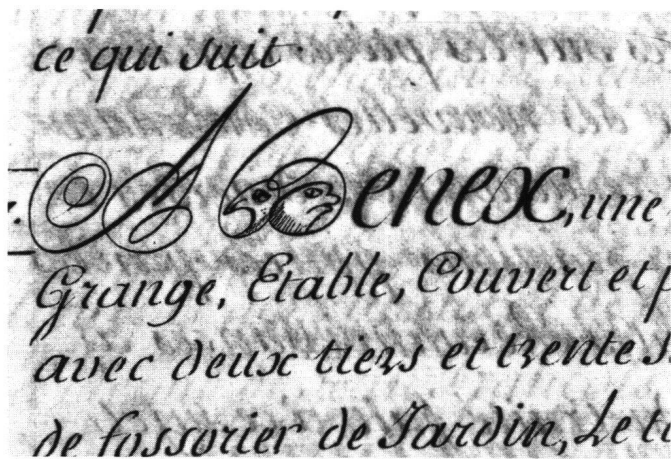 ce qui suit.
A Benex, une
Grange, Etable, Couvert et p
avec deux tiers et trente s
de fossorier de Jardin, Le ti